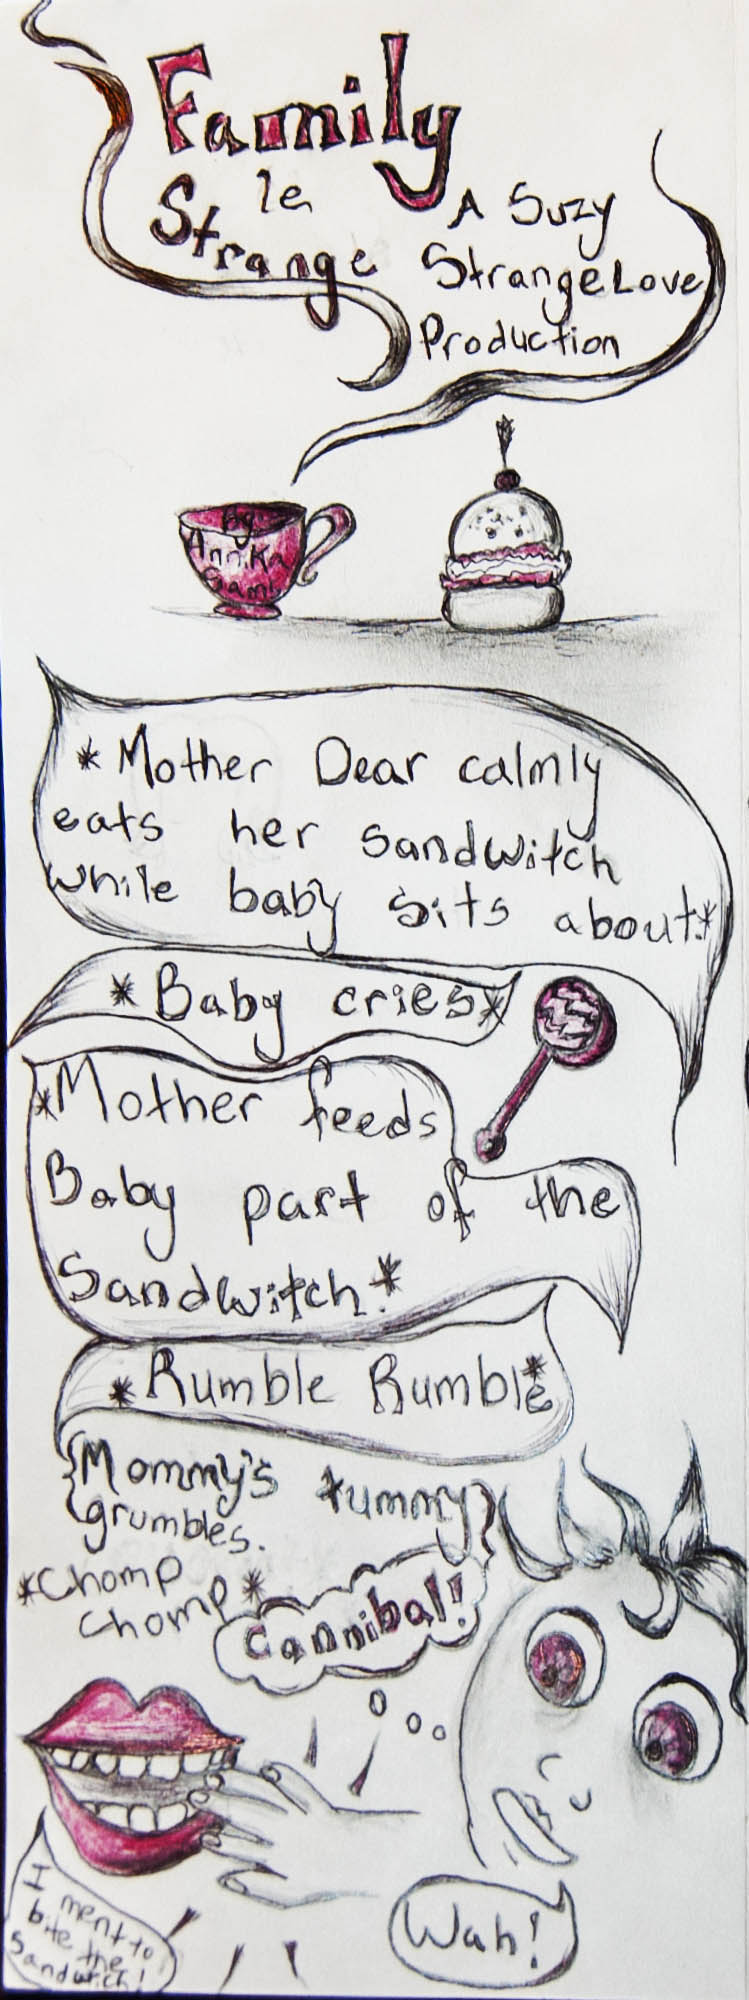 Family
le
Strange
A Suzy
StrangeLove
Production
By
Annika
*Mother Dear calmly
eats her sandwitch
while baby sits about.*
*Baby cries*
*Mother feeds
Baby part of the
Sandwitch.*
*Rumble Rumble*
{Mommy's tummy}
grumbles.
*Chomp
Chomp*
Cannibal!
I ment to
bite the
Sandwich!
Wah!